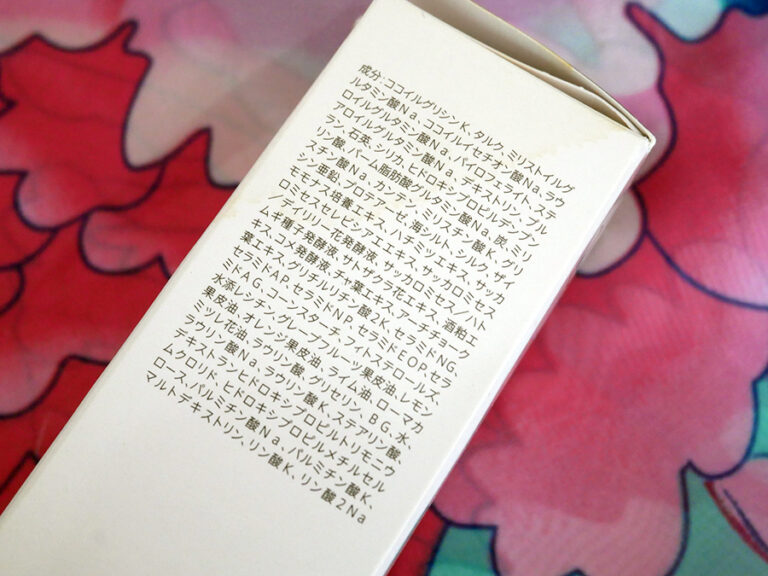 成分：ココイルグリシンK、タルク、ミリストイルグ
ルタミン酸Na、ココイルイセチオン酸Na、ラウ
ロイルグルタミン酸Na、パイロフェライト、ステ
アロイルグルタミン酸Na、デキストリン、プル
ラン、石英、シリカ、ヒドロキシプロピルデンプン
リン酸、パーム脂肪酸グルタミン酸Na、炭、ミリ
スチン酸Na、カンテン、ミリスチン酸K、グリ
シン亜鉛、プロテアーゼ、海シルト、シルク、ザイ
モモナス培養エキス、ハチミツエキス、サッカ
ロミセスセレビシアエエキス、サッカロミセス
／デイリリー花発酵液、サッカロミセス／ハト
ムギ種子発酵液、サトザクラ花エキス、酒粕エ
キス、コメ発酵液、チャ葉エキス、アーチチョーク
葉エキス、グリチルリチン酸2K、セラミドNG、
セラミドAP、セラミドNP、セラミドEOP、セラ
ミドAG、コーンスターチ、フィトステロールズ、
水添レシチン、グレープフルーツ果皮油、レモン
果皮油、オレンジ果皮油、ライム油、ローマカ
ミツレ花油、ラウリン酸、グリセリン、BG、水、
ラウリン酸Na、ラウリン酸K、ステアリン酸、
デキストランヒドロキシプロピルトリモニウ
ムクロリド、ヒドロキシプロピルメチルセル
ロース、パルミチン酸Na、パルミチン酸K、
マルトデキストリン、リン酸K、リン酸2Na